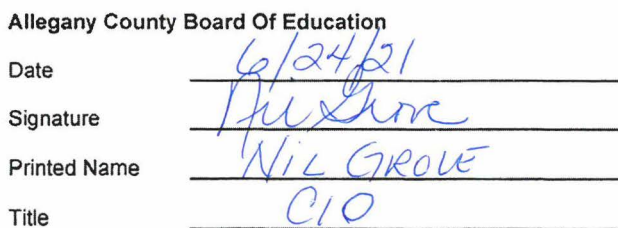 Allegany County Board Of Education
Date 6/24/21
Signature Nil Grove
Printed Name NIL GROVE
Title CIO